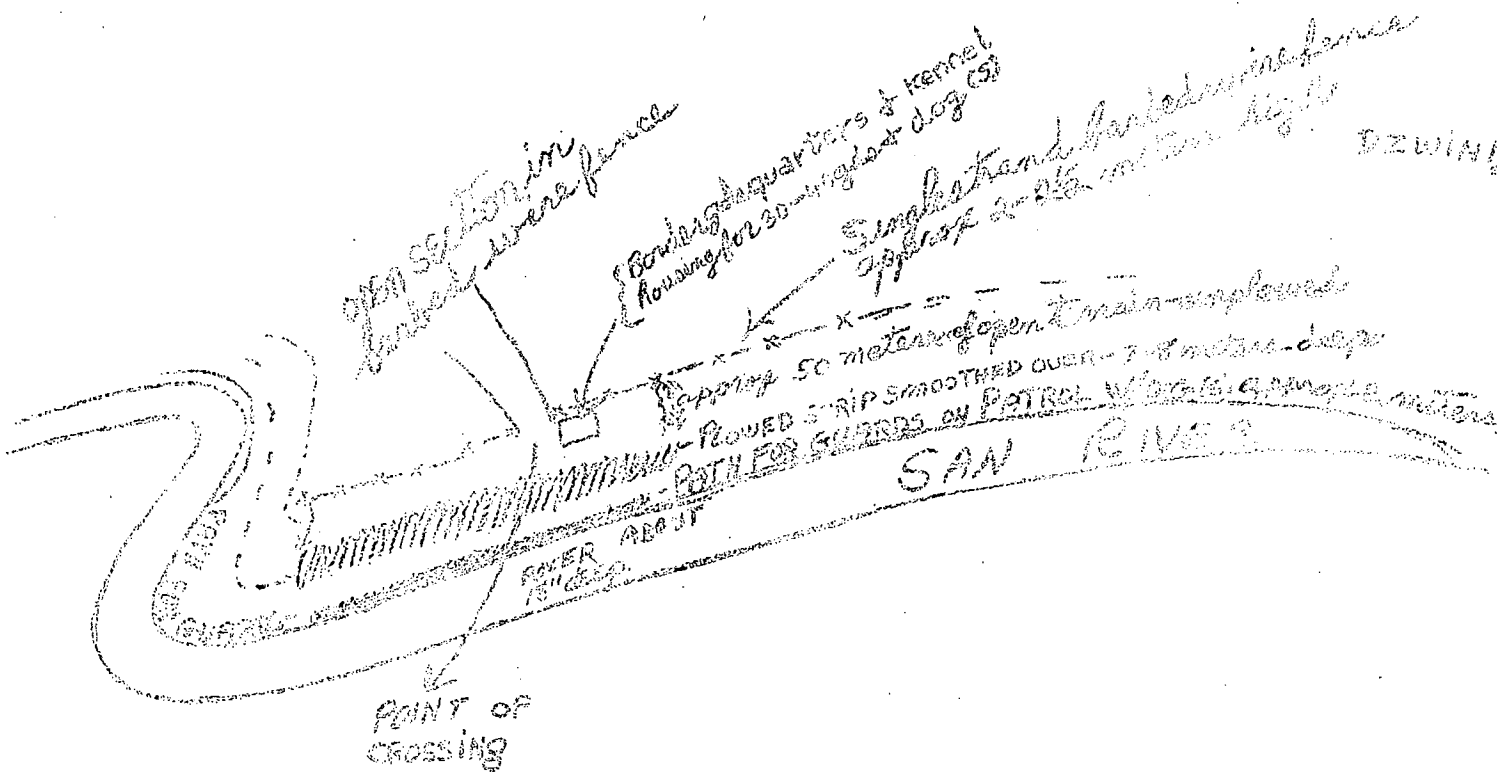 open section in
barbed wire fence
Border headquarters & kennel
housing for 30- dog(s)
Single strand barbed wire fence
approx 2-2½ meters high
DZWIN
approx 50 meters of open terrain-unplowed
PLOWED STRIP SMOOTHED OVER - 7-8 meters deep
PATH FOR GUARDS ON PATROL approx meters
SAN RIVER
RIVER ABOUT
deep
GUARDS
POINT OF
CROSSING